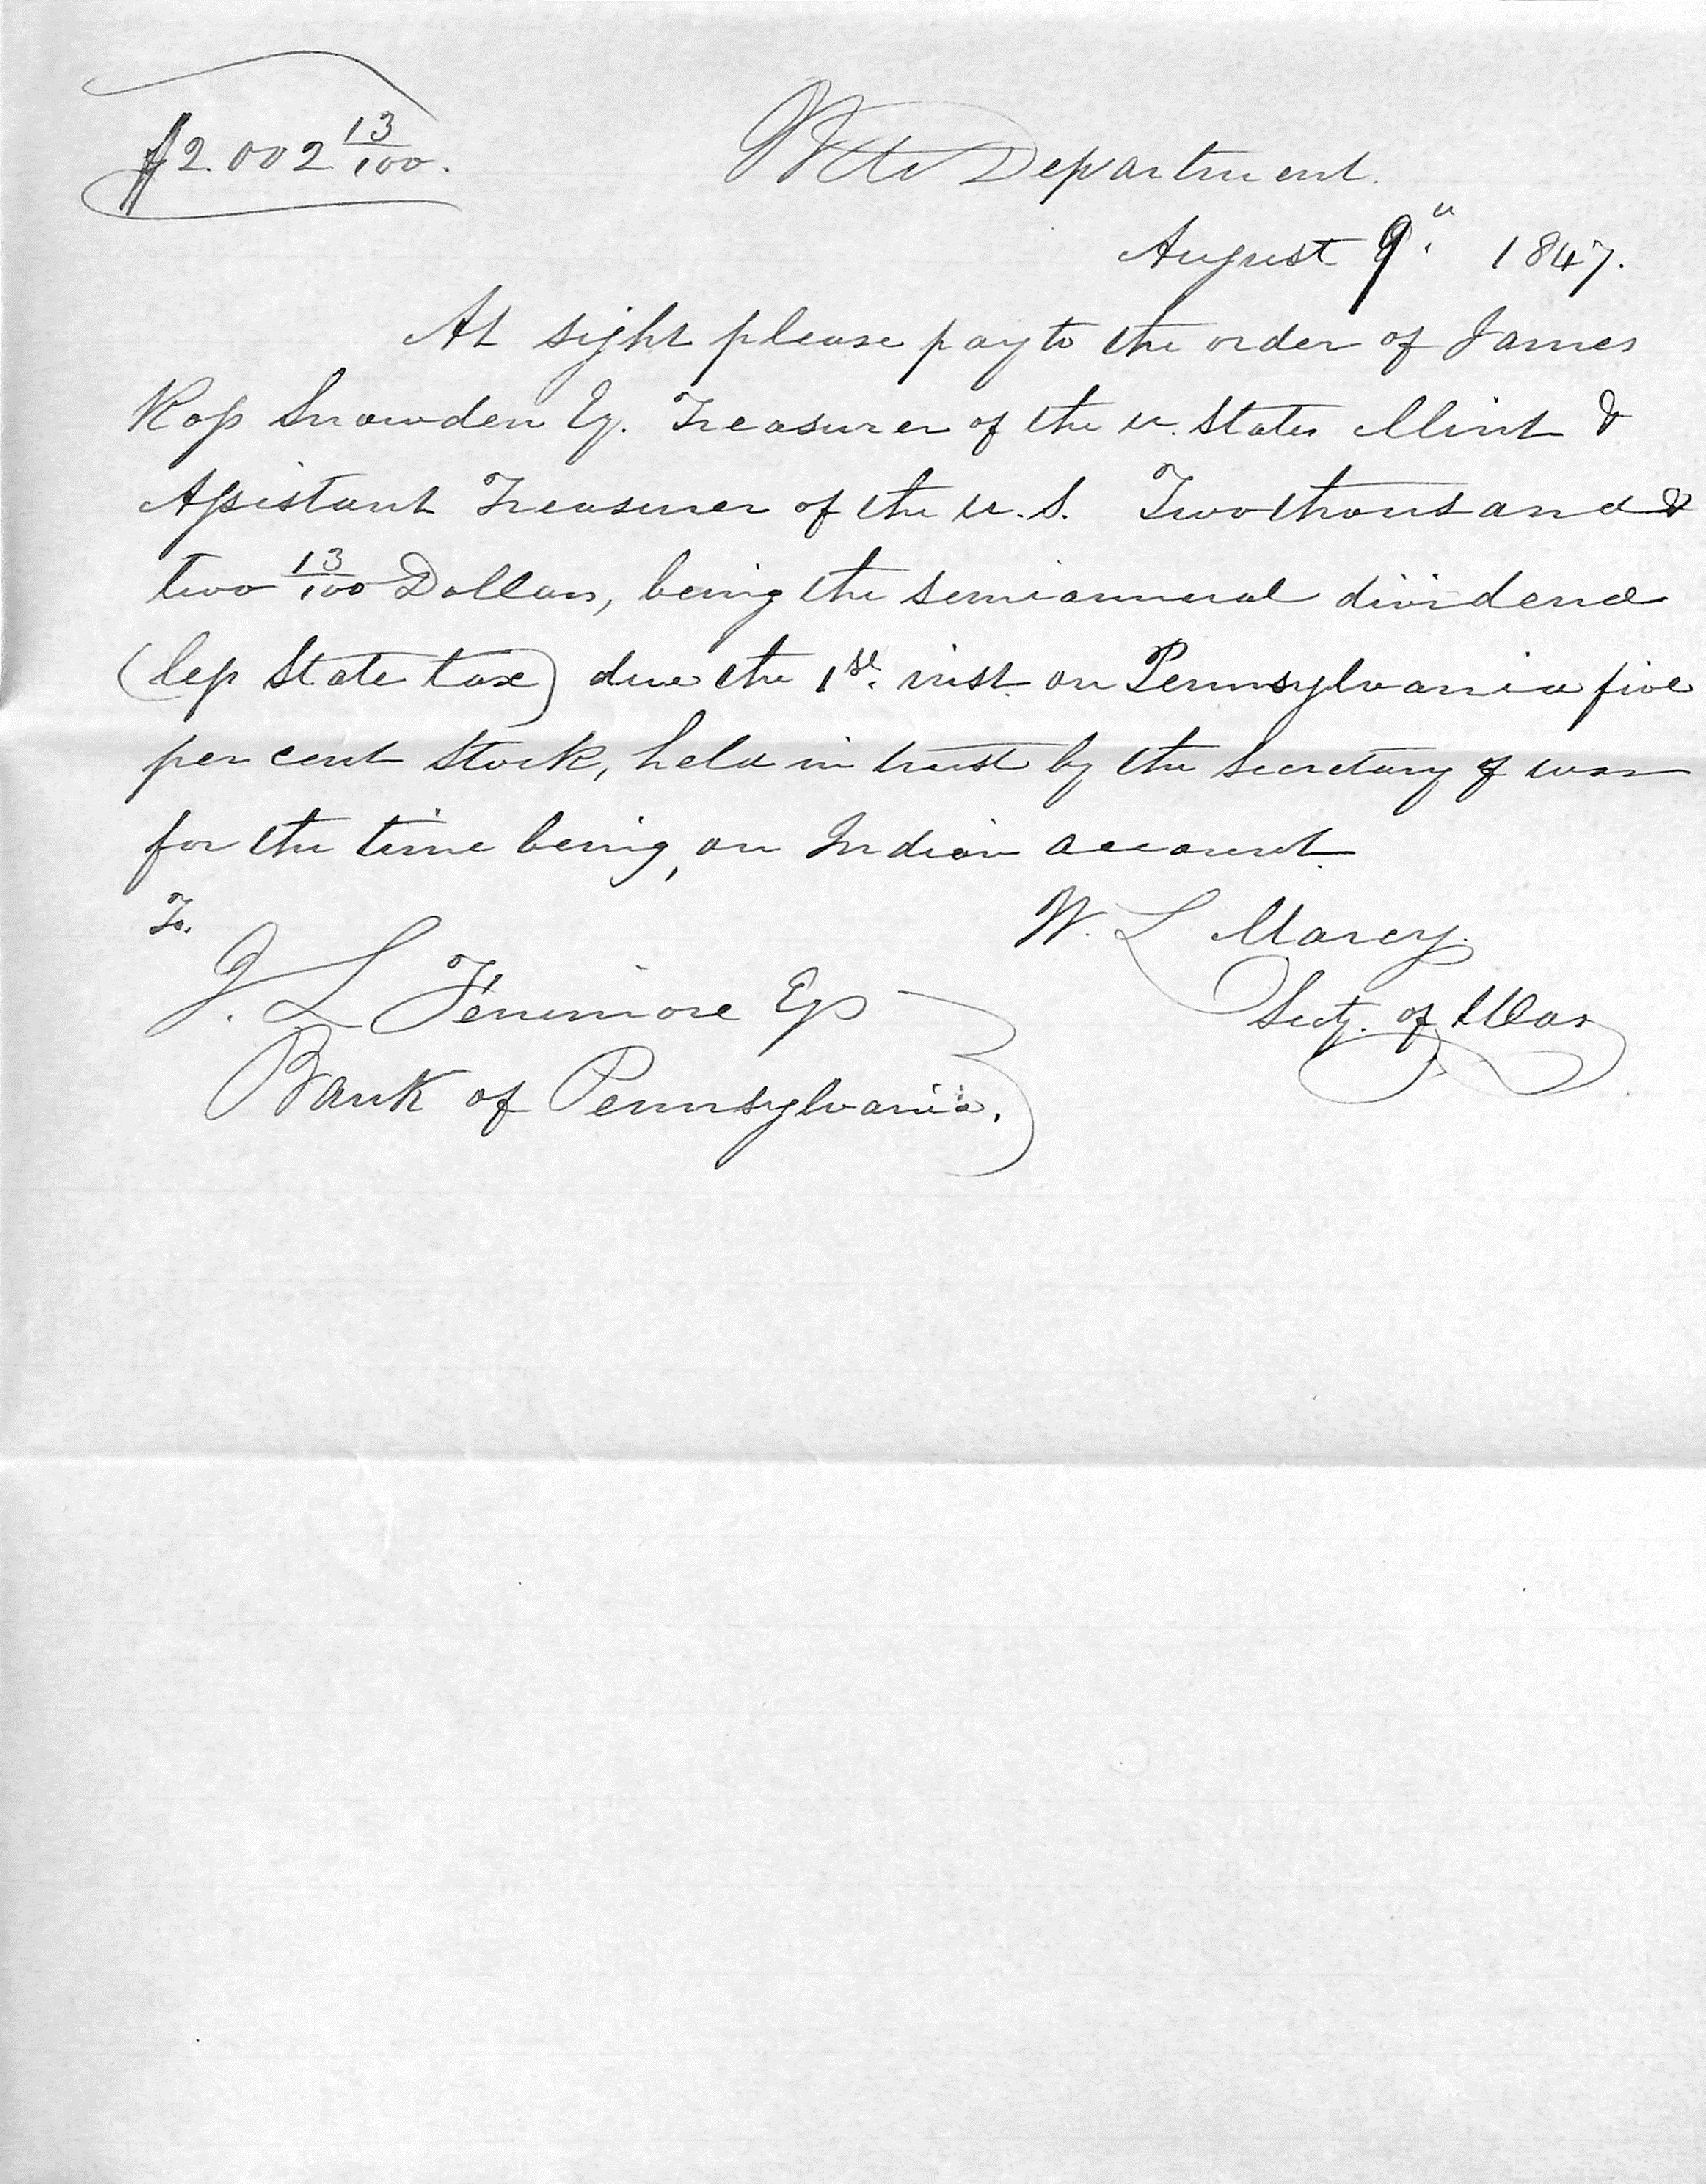 $2.002 13/100.
War Department.
August 9". 1847.
At sight please pay to the order of James
Ross Snowden Esq. Treasurer of the U. States Mint &
Assistant Treasurer of the U.S. Two thousand &
two 13/100 Dollars, being the semiannual dividend
(less State tax) due the 1st. inst. on Pennsylvania five
per cent Stock, held in trust by the Secretary of war
for the time being, on Indian account.
W. L Marcy.
Secty. of War
To.
J. L Fenimore Esq
Bank of Pennsylvania.